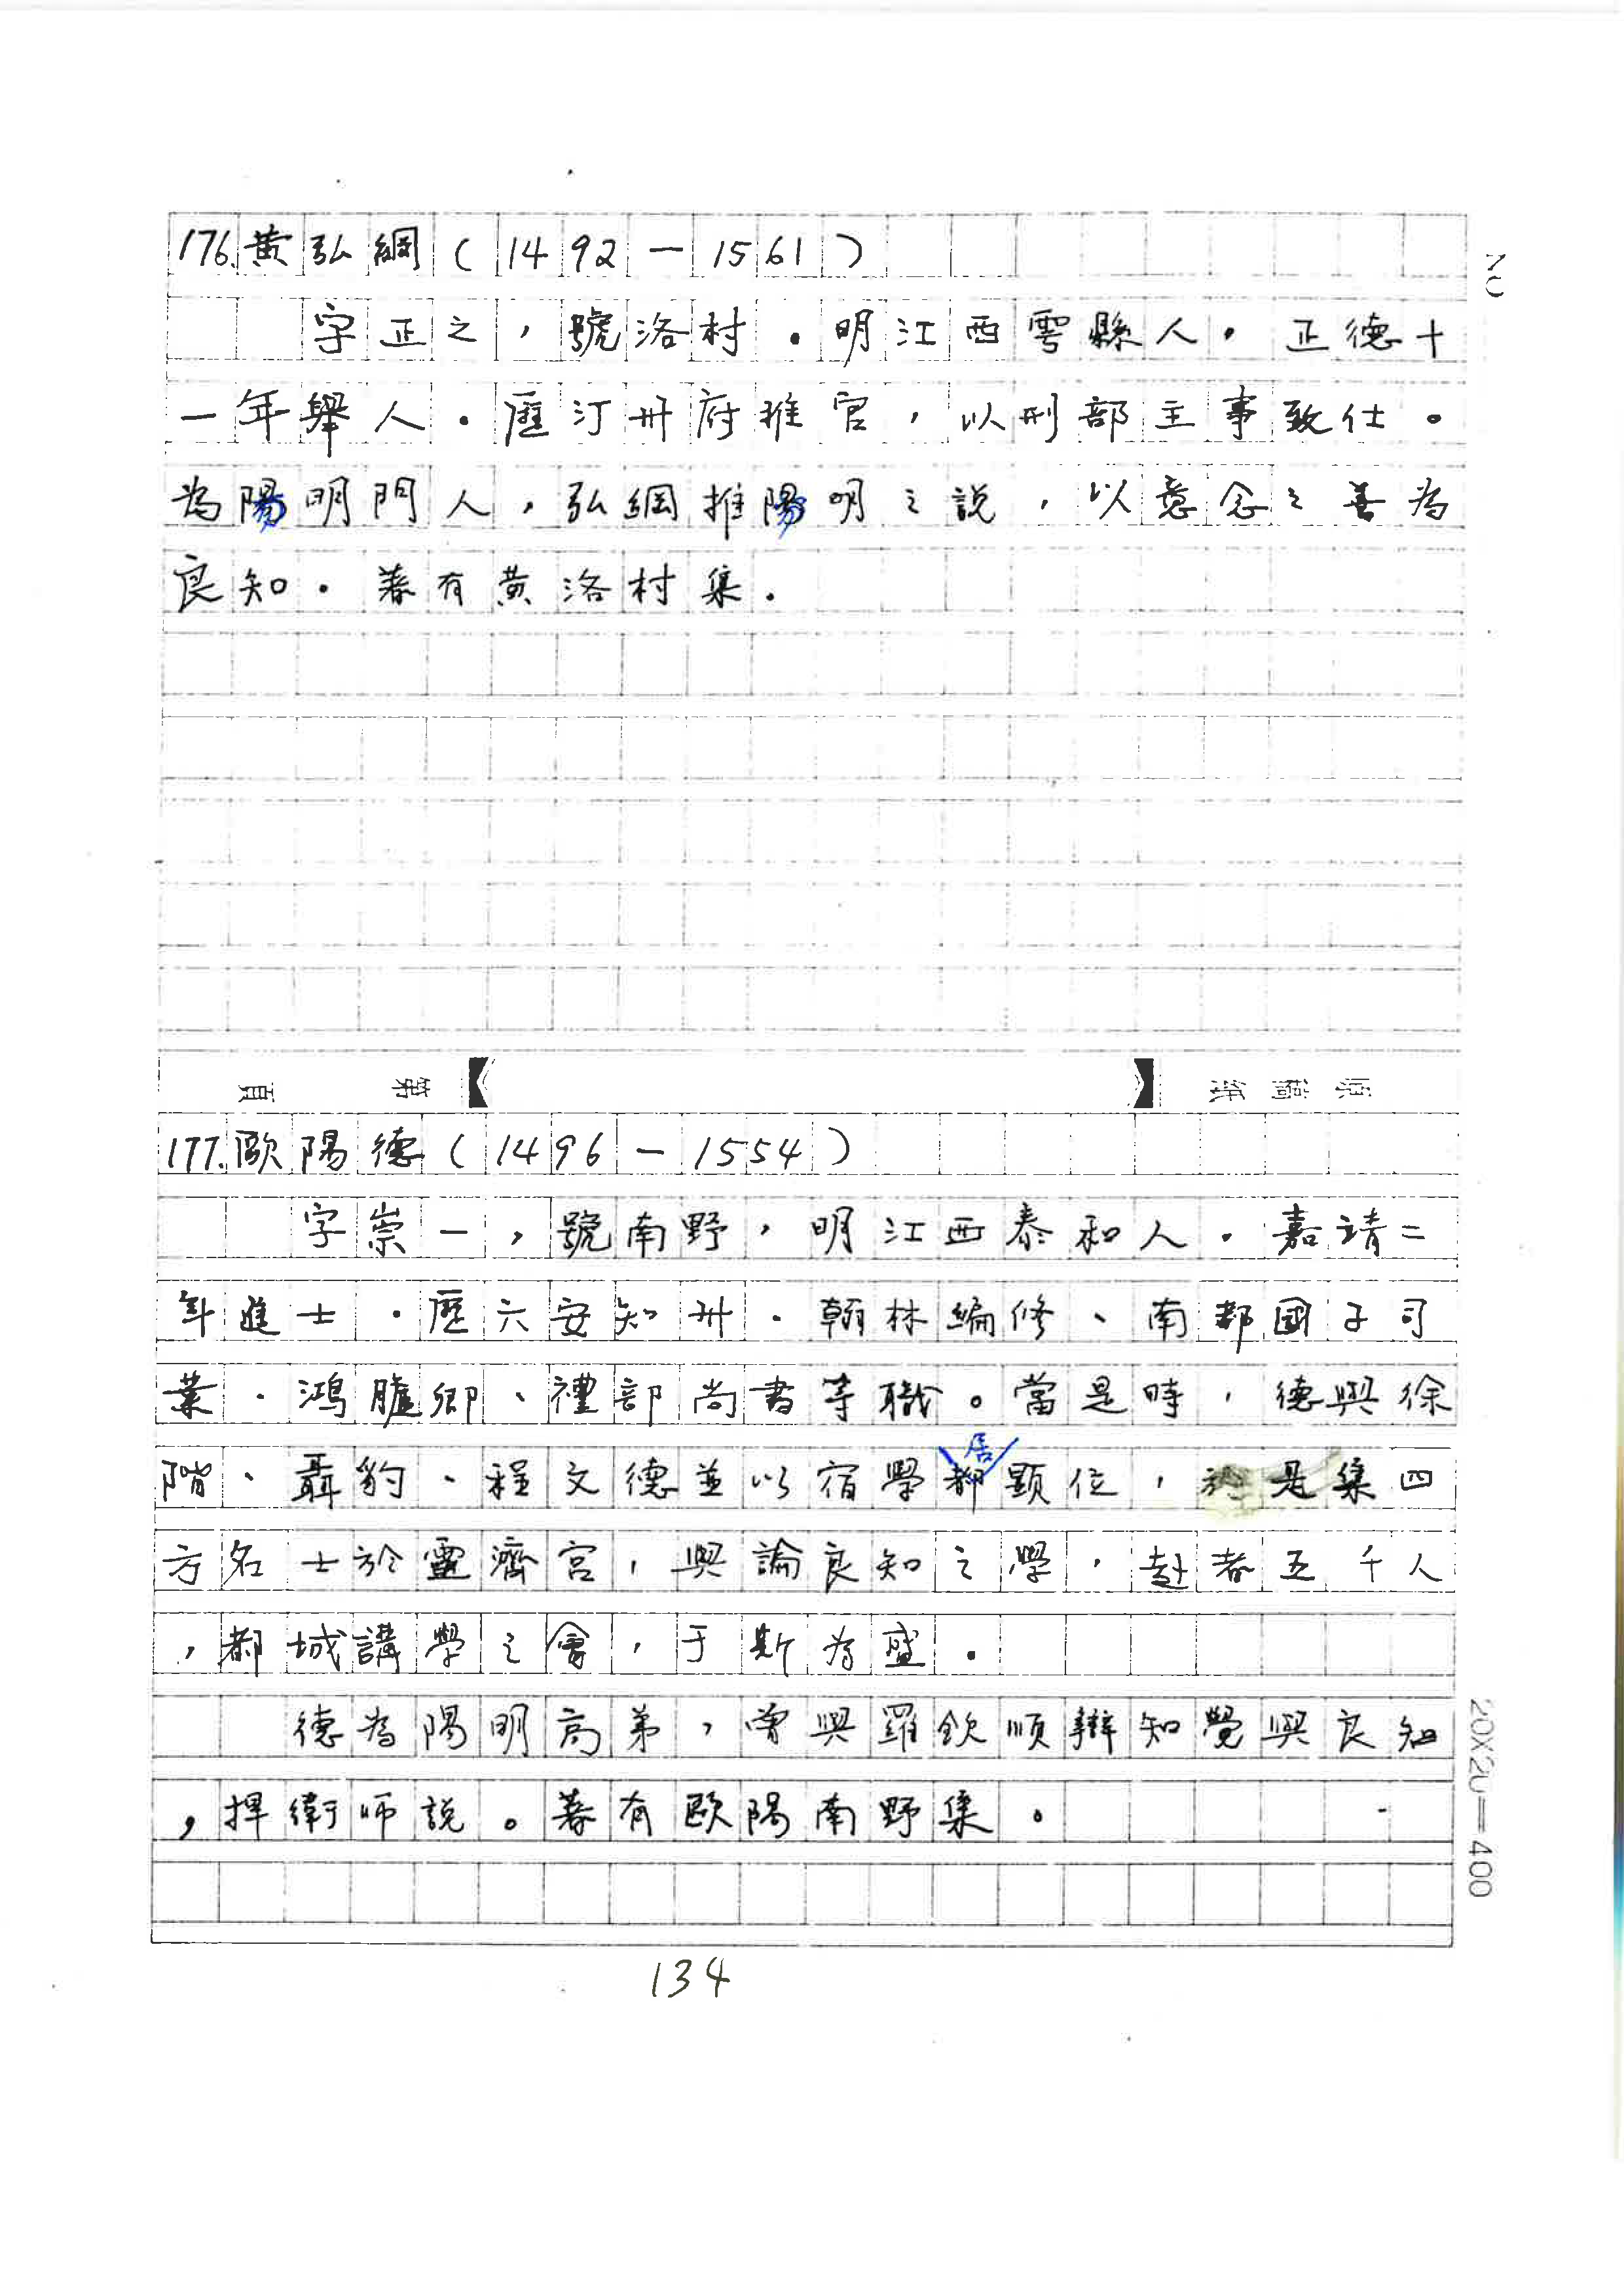 176.黃弘綱(1492一1561)
字正之,號洛村。明江西雩縣人。正德十
一年舉人。歷汀州府推官,以刑部主事致仕。
為陽明門人,弘綱推陽明之說,以意念之善為
良知。著有黃洛村集。
頁 第
稿紙
177.歐陽德(1496一1554)
字崇一,號南野,明江西泰和人。嘉靖二
年進士。歷六安知州、翰林編修、南都國子司
業、鴻臚卿、禮部尚書等職。當是時,德與徐
階、聶豹、程文德並以宿學居顯位,於是集四
方名士於靈濟宮,與論良知之學,赴者五千人
,都城講學之會,于斯為盛。
德為陽明高弟,嘗與羅欽順辯知覺與良知
,捍衛師說。著有歐陽南野集。
20X20=400
134